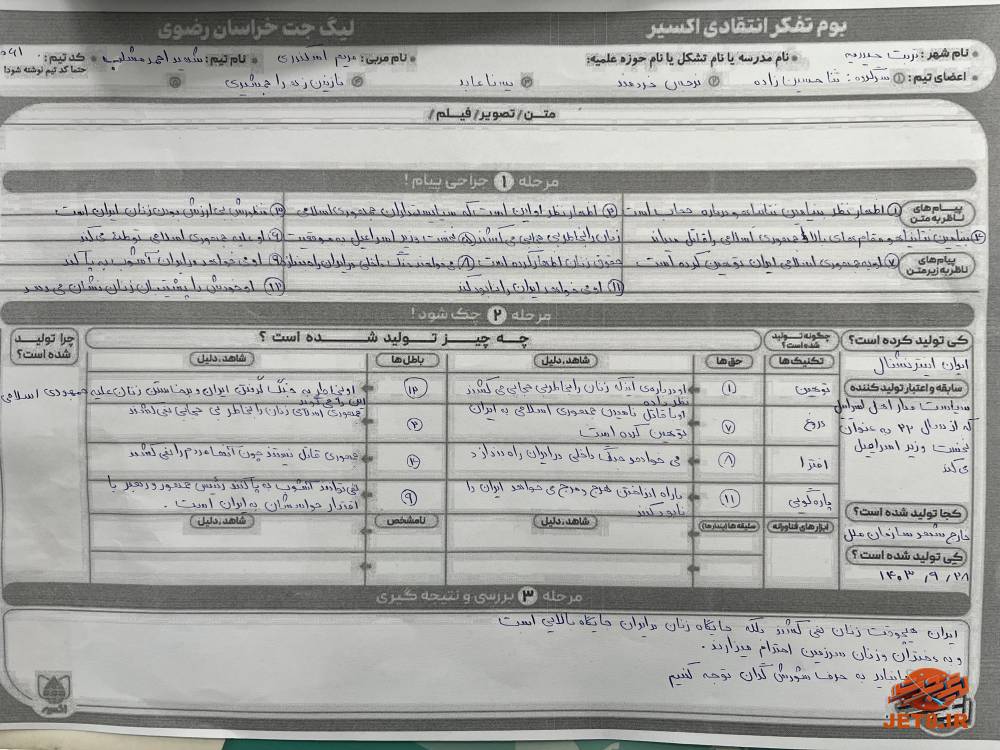 بوم تفکر انتقادی اکسیر
لیگ جت خراسان رضوی
نام شهر: تربت حیدریه
نام مدرسه یا نام تشکل یا نام حوزه علمیه:
نام مربی: مریم اسکندری
نام تیم: شهید احمد مشلب
کد تیم:
حتما کد تیم نوشته شود!
اعضای تیم: ① سرگروه: ثنا حسین زاده ② نرجس خردمند ③ یسنا عابد ④ نازنین زهرا جمشیدی ⑤
متن/تصویر/فیلم/
مرحله ۱ جراحی پیام!
پیام‌های ناظر به متن
① اظهار نظر بنیامین نتانیاهو درباره حجاب است
② اظهار نظر او این است که سیاستمداران جمهوری اسلامی زنان را بخاطر بی حجابی می کشند
③ منظورش بی ارزش بودن زنان ایران است.
④ بنیامین نتانیاهو مقام های بالای جمهوری اسلامی را قاتل میداند
پیام‌های ناظر به زیرمتن
⑦ او به جمهوری اسلامی ایران توهین کرده است
⑧ می خواهند جنگ داخلی در ایران راه بیندازند
⑨ او می خواهد در ایران آشوب به پا کند
⑪ او می خواهد ایران را نابود کند
⑫ او خودش را پشتیبان زنان نشان می دهد
مرحله ۲ چک شود!
کی تولید کرده است؟
چگونه تولید شده است؟
چه چیز تولید شده است؟
چرا تولید شده است؟
تکنیک‌ها
حق‌ها
شاهد، دلیل
باطل‌ها
شاهد، دلیل
ایران اینترنشنال
سابقه و اعتبار تولید کننده
سیاست مدار اهل اسرائیل
که از سال ۲۲ به عنوان
نخست وزیر اسرائیل
می کند
توهین
①
او درباره‌ی اینکه زنان را بخاطر بی حجابی می کشند نظر داده
دروغ
⑦
او با قاتل نامیدن جمهوری اسلامی به ایران
توهین کرده است
②
جمهوری اسلامی زنان را بخاطر بی حجابی نمی کشد
افترا
⑧
می خواهد جنگ داخلی در ایران راه بیندازد
④
جمهوری قاتل نیستند چون آنها مردم را نمی کشند
پاره گویی
⑪
با راه انداختن هرج و مرج می خواهد ایران را
نابود کنند
⑨
نمی توانند آشوب به پا کنند رئیس جمهور و رهبر با
اقتدار حواسشان به ایران است.
کجا تولید شده است؟
خارج شهر سازمان ملل
کی تولید شده است؟
۱۴۰۳/۹/۲۸
ابزارهای فناورانه
سلیقه‌ها (پندارها)
شاهد، دلیل
نامشخص
شاهد، دلیل
مرحله ۳ بررسی و نتیجه گیری
ایران هیچوقت زنان نمی کشند بلکه جایگاه زنان در ایران جایگاه بالایی است
و به دختران و زنان سرزمین احترام میدارند.
نباید به حرف شورش گران توجه کنیم
اکسیر
JET8.IR